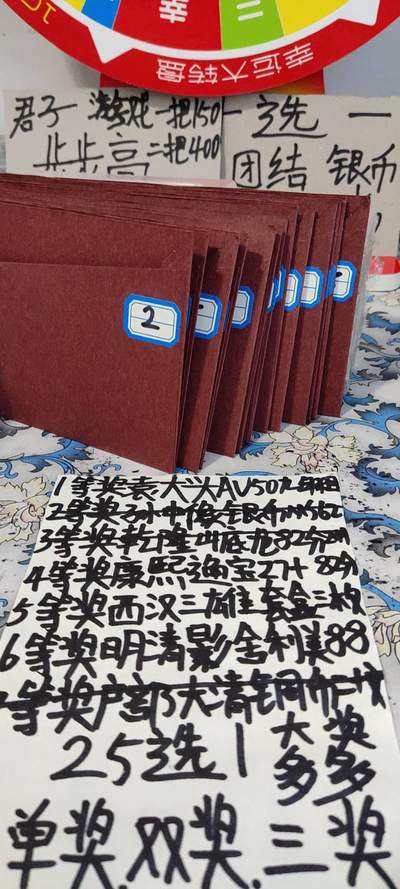 幸运大转盘
君子一游戏一把150
步步高二把400
一选一
团结 银币
2
1等奖袁大头AU50
2等奖孙中像银币MS62
3等奖乾隆山底龙82分
4等奖康熙通宝27+ 82分
5等奖西汉三雄套盒三枚
6等奖明清影舍利美88
等奖户部大清铜币二枚
25选1 大奖多多
单奖.双奖.三奖